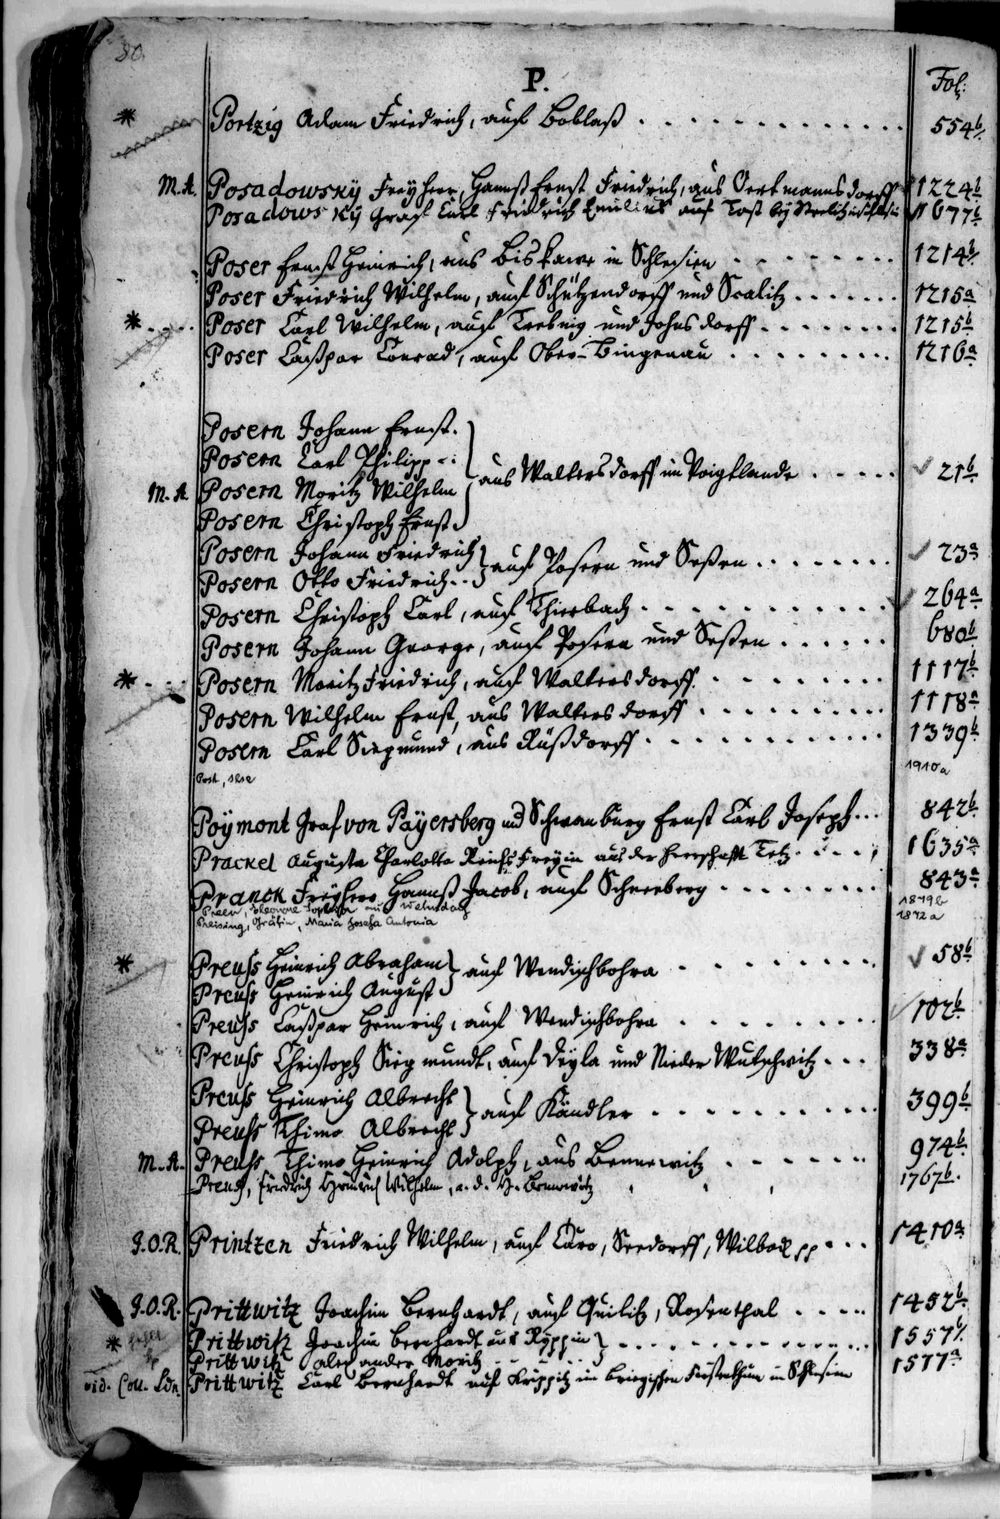 80.
P.
Fol:
* Portzig Adam Friedrich, auf Boblaß . . . . 554b
M.A. Posadowsky Freyherr, Hannß Ernst Friedrich, aus Oertmannsdorff 1224b
Posadowsky Graf Carl Friedrich Emilius auf Tost bey Strelitz in Schlesien 1677b
Poser Ernst Heinrich, aus Biskawe in Schlesien . . . . 1214b
Poser Friedrich Wilhelm, auf Schützendorff und Scalitz . . . . 1215a
* Poser Carl Wilhelm, auf Trebnig und Johnsdorff . . . . 1215b
Poser Caßpar Conrad, auf Ober-Bingenau . . . . 1216a
Posern Johann Ernst.
Posern Carl Philipp
aus Waltersdorff im Voigtlande . . . . 21b
M.A. Posern Moritz Wilhelm
Posern Christoph Ernst
Posern Johann Friedrich
auf Posern und Seßen . . . . 23a
Posern Otto Friedrich
Posern Christoph Carl, auf Thierbach . . . . 264a
Posern Johann George, auf Posern und Seßen . . . . 680b
* Posern Moritz Friedrich, auf Waltersdorff . . . . 1117b
Posern Wilhelm Ernst, aus Waltersdorff . . . . 1118a
Posern Carl Siegmund, aus Rüßdorff . . . . 1339b
1910a
Poymont Graf von Payersberg und Schwanburg Ernst Carl Joseph . . . 842b
Prackel Augusta Charlotta Reichs Freyin aus der Herrschafft Tetz . . . 1635a
Pranck Freyherr Hannß Jacob, auf Schneeberg . . . . 843a
1879b
Preising, Gräfin, Maria Josefa Antonia 1872a
* Preuss Heinrich Abraham
auf Wendischbohra . . . . 58b
Preuss Heinrich August
Preuss Caßpar Heinrich, auf Wendischbohra . . . . 102b
Preuss Christoph Siegmundt, auf Deyla und Nieder Wutschwitz . . . 338a
Preuss Heinrich Albrecht
auf Kändler . . . . 399b
Preuss Thimo Albrecht
M.A. Preuss Thimo Heinrich Adolph, aus Bennewitz . . . . 974b
Preuß, Friedrich Heinrich Wilhelm, a. d. H. Bennewitz 1767b.
J.O.R. Printzen Friedrich Wilhelm, auf Caro, Seedorff, Wilbock pp . . . 1410a
J.O.R. Prittwitz Joachim Bernhardt, auf Quilitz, Rosenthal . . . . 1452b
* Prittwitz Joachim Bernhardt aus Ruppin . . . . 1557b
Prittwitz Alexander Moritz 1577a
vid. Prittwitz Carl Bernhardt auf Krippitz im Briegischen Fürstenthum in Schlesien